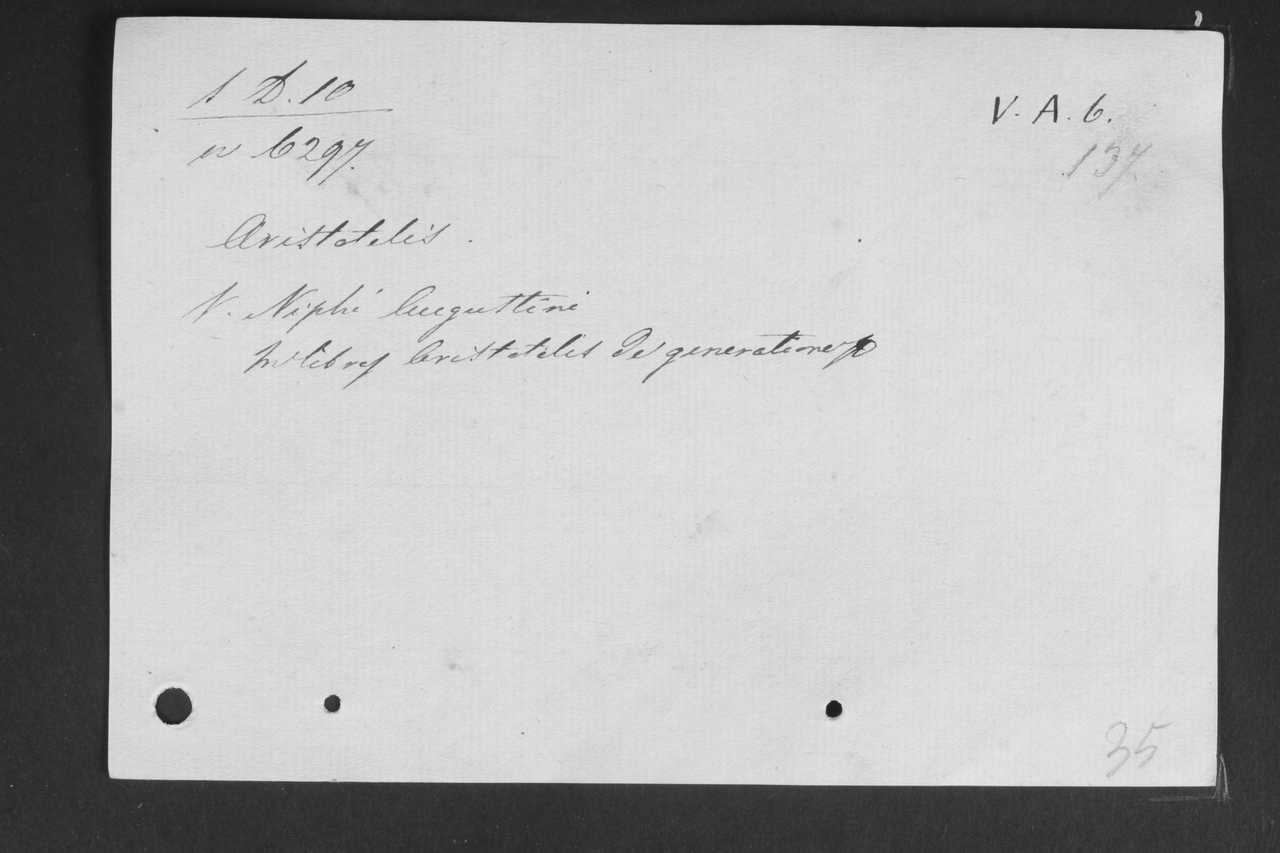 s D. 10
n 6297.
V. A. 6.
137.
Aristotelis.
V. Niphi Augustini
In libros Aristotelis de generatione
35